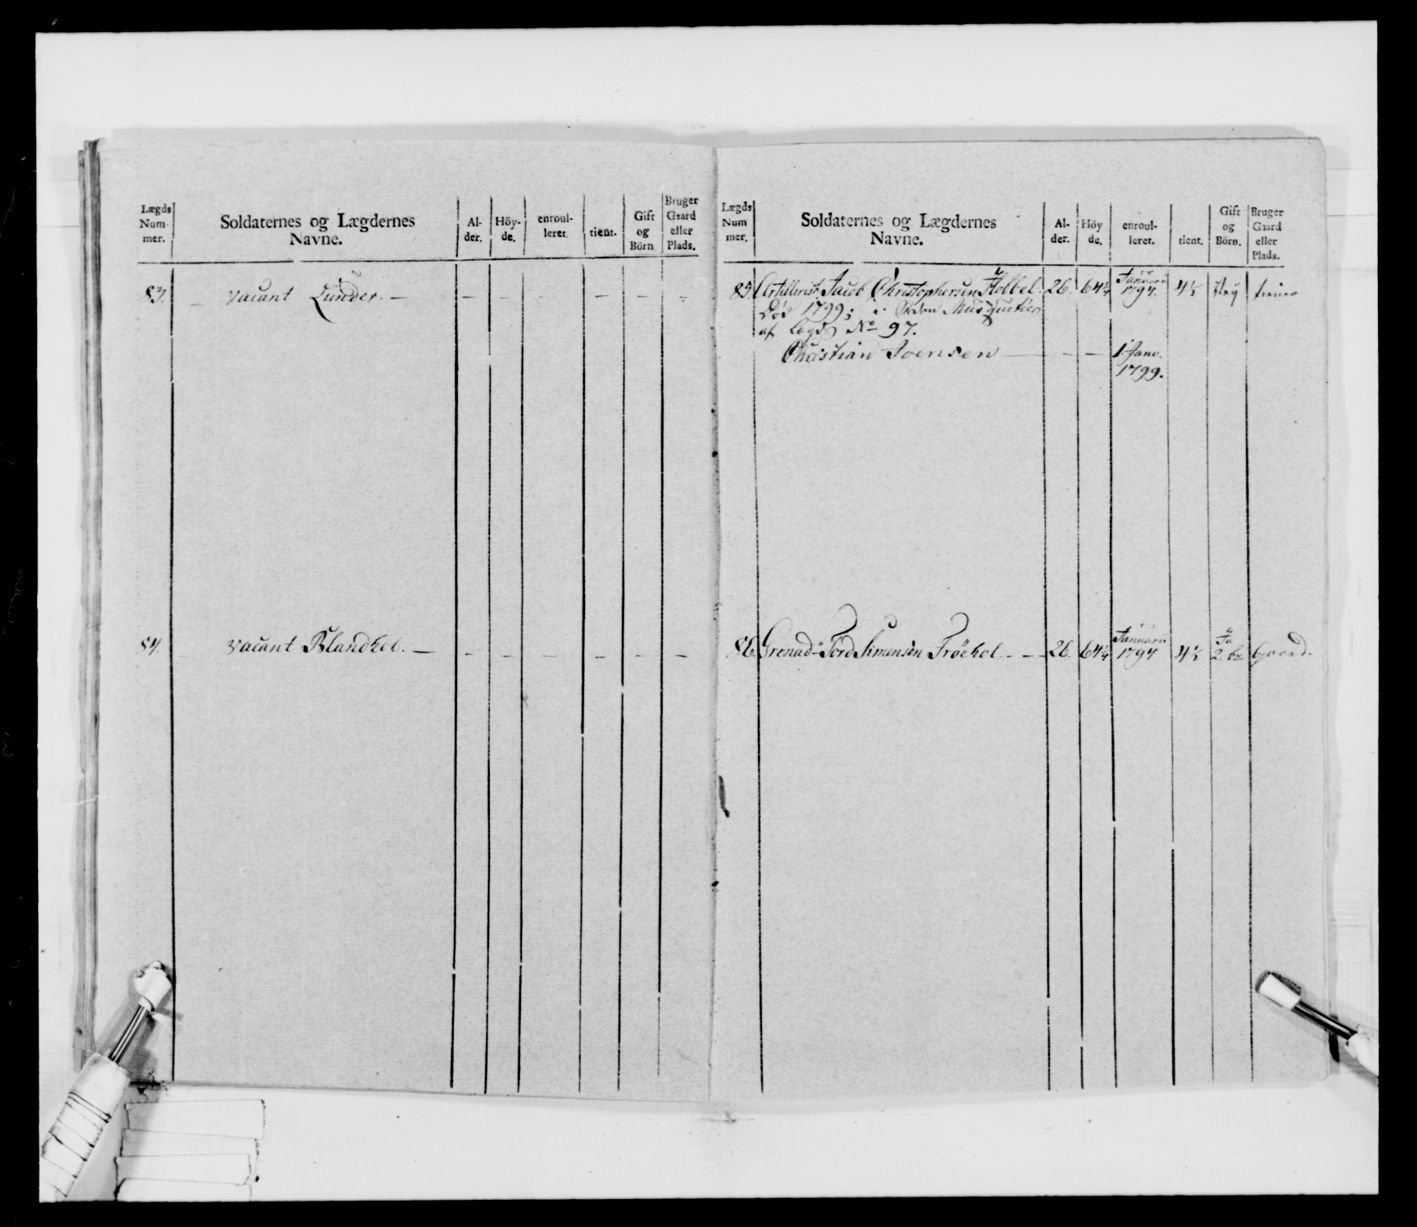 Lægds
Num-
mer.
Soldaternes og Lægdernes
Navne.
Al-
der.
Höy-
de.
enroul-
leret.
tient.
Gift
og
Börn.
Bruger
Gaard
eller
Plads.
83. vacant Lunder.
84. vacant Blandkol.
Lægds
Num-
mer.
Soldaternes og Lægdernes
Navne.
Al-
der.
Höy
de.
enroul-
leret.
tient.
Gift
og
Börn.
Bruger
Gaard
eller
Plads.
85. Artillerist Jacob Christophersen 26. 64¼ Januari 1794. 4½
Död 1799; i Steden Musquetier
af Lægd No 97.
Christian Joensen 1 Janv.
1799.
86. Grenad. Tord Simensen 26. 64¼ Januari 1794 4½ Ja 2 Goord.